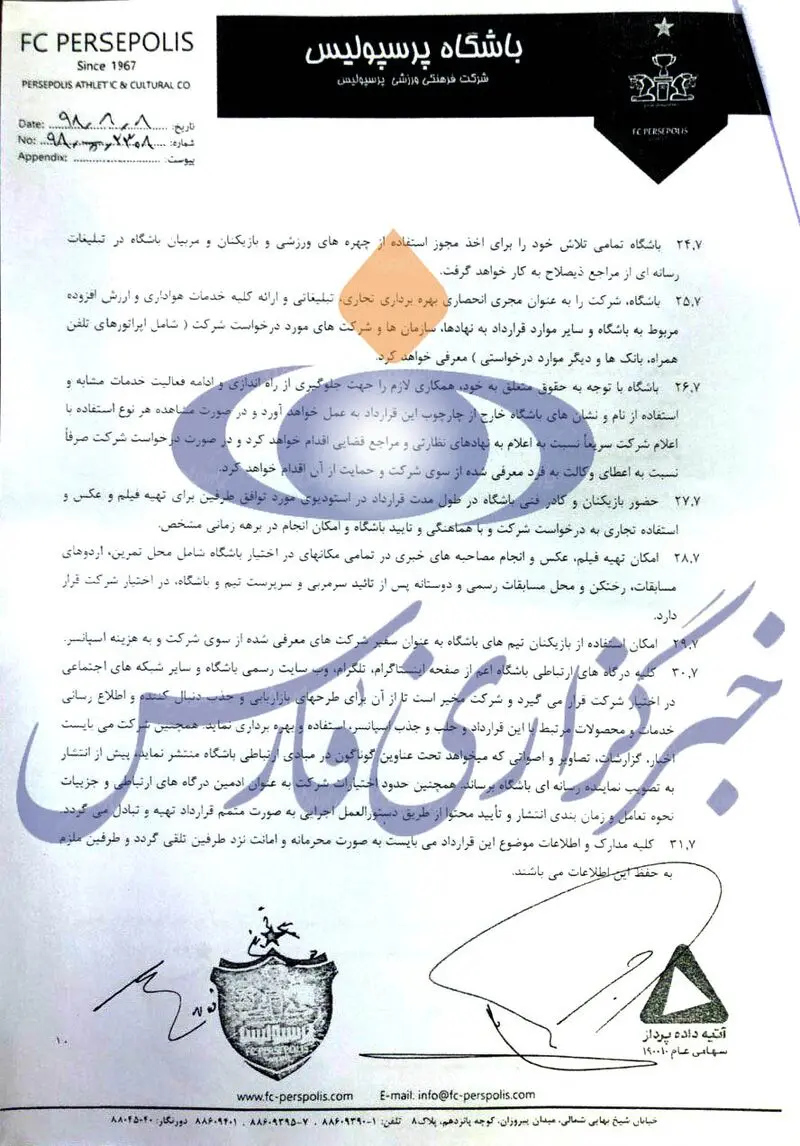 FC PERSEPOLIS
Since 1967
PERSEPOLIS ATHLETIC & CULTURAL CO
باشگاه پرسپولیس
شرکت فرهنگی ورزشی پرسپولیس
FC PERSEPOLIS
Date: ۹۸،۸،۸ تاریخ:
No: شماره:
Appendix: پیوست:
۲۴.۷ باشگاه تمامی تلاش خود را برای اخذ مجوز استفاده از چهره های ورزشی و بازیکنان و مربیان باشگاه در تبلیغات
رسانه ای از مراجع ذیصلاح به کار خواهد گرفت.
۲۵.۷ باشگاه، شرکت را به عنوان مجری انحصاری بهره برداری تجاری، تبلیغاتی و ارائه کلیه خدمات هواداری و ارزش افزوده
مربوط به باشگاه و سایر موارد قرارداد به نهادها، سازمان ها و شرکت های مورد درخواست شرکت ( شامل اپراتورهای تلفن
همراه، بانک ها و دیگر موارد درخواستی ) معرفی خواهد کرد.
۲۶.۷ باشگاه با توجه به حقوق متعلق به خود، همکاری لازم را جهت جلوگیری از راه اندازی و ادامه فعالیت خدمات مشابه و
استفاده از نام و نشان های باشگاه خارج از چارچوب این قرارداد به عمل خواهد آورد و در صورت مشاهده هر نوع استفاده با
اعلام شرکت سریعاً نسبت به اعلام به نهادهای نظارتی و مراجع قضایی اقدام خواهد کرد و در صورت درخواست شرکت صرفاً
نسبت به اعطای وکالت به فرد معرفی شده از سوی شرکت و حمایت از آن اقدام خواهد کرد.
۲۷.۷ حضور بازیکنان و کادر فنی باشگاه در طول مدت قرارداد در استودیوی مورد توافق طرفین برای تهیه فیلم و عکس و
استفاده تجاری به درخواست شرکت و با هماهنگی و تایید باشگاه و امکان انجام در برهه زمانی مشخص.
۲۸.۷ امکان تهیه فیلم، عکس و انجام مصاحبه های خبری در تمامی مکانهای در اختیار باشگاه شامل محل تمرین، اردوهای
مسابقات، رختکن و محل مسابقات رسمی و دوستانه پس از تائید سرمربی و سرپرست تیم و باشگاه، در اختیار شرکت قرار
دارد.
۲۹.۷ امکان استفاده از بازیکنان تیم های باشگاه به عنوان سفیر شرکت های معرفی شده از سوی شرکت و به هزینه اسپانسر.
۳۰.۷ کلیه درگاه های ارتباطی باشگاه اعم از صفحه اینستاگرام، تلگرام، وب سایت رسمی باشگاه و سایر شبکه های اجتماعی
در اختیار شرکت قرار می گیرد و شرکت مخیر است تا از آن برای طرحهای بازاریابی و جذب دنبال کننده و اطلاع رسانی
خدمات و محصولات مرتبط با این قرارداد و جلب و جذب اسپانسر، استفاده و بهره برداری نماید. همچنین شرکت می بایست
اخبار، گزارشات، تصاویر و اصواتی که میخواهد تحت عناوین گوناگون در مبادی ارتباطی باشگاه منتشر نماید، پیش از انتشار
به تصویب نماینده رسانه ای باشگاه برساند. همچنین حدود اختیارات شرکت به عنوان ادمین درگاه های ارتباطی و جزییات
نحوه تعامل و زمان بندی انتشار و تأیید محتوا از طریق دستورالعمل اجرایی به صورت متمم قرارداد تهیه و تبادل می گردد.
۳۱.۷ کلیه مدارک و اطلاعات موضوع این قرارداد می بایست به صورت محرمانه و امانت نزد طرفین تلقی گردد و طرفین ملزم
به حفظ این اطلاعات می باشند.
خبرگزاری فارس
FC PERSEPOLIS
آتیه داده پرداز
سهامی عام ۱۹۰۰۱۰
۱۰
www.fc-perspolis.com E-mail: info@fc-perspolis.com
خیابان شیخ بهایی شمالی، میدان پیروزان، کوچه پانزدهم، پلاک۸ تلفن: ۱-۸۸۶۰۹۳۹۰ ، ۷-۸۸۶۰۹۳۹۵ ، ۸۸۶۰۹۴۰۱ دورنگار: ۴۰-۸۸۰۴۵